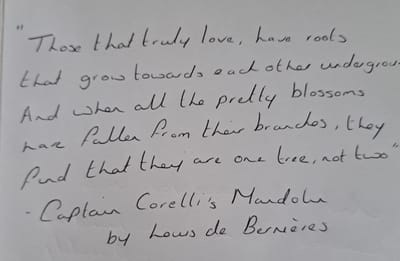 "Those that truly love, have roots
that grow towards each other undergrou
And when all the pretty blossoms
have fallen from their branches, they
find that they are one tree, not two"
- Captain Corelli's Mandolin
by Louis de Bernières